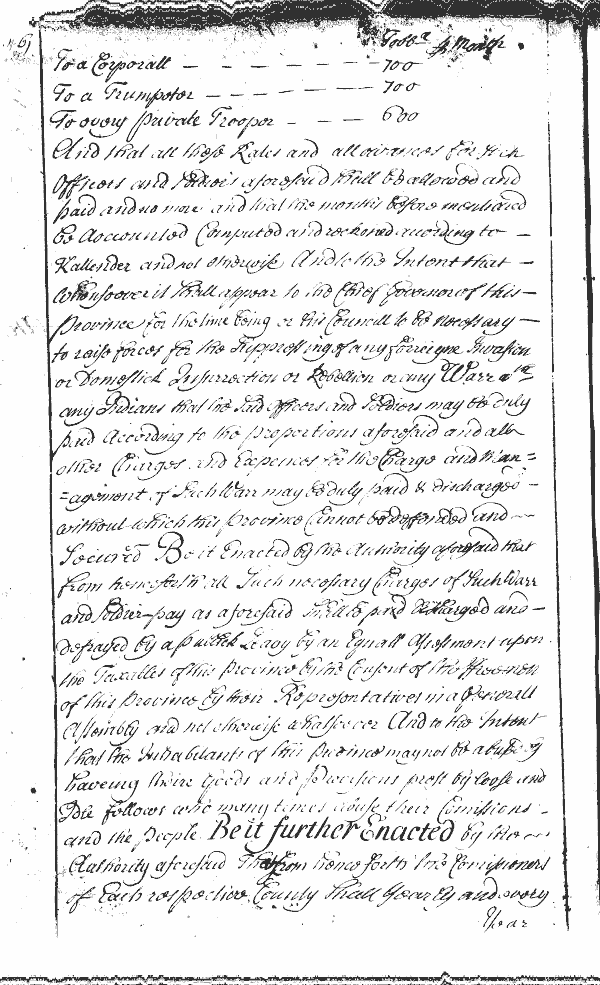 61
Tobbo p Month
To a Corporall — — — — — — 700
To a Trumpeter — — — — — — 700
To every private Trooper — — — 600
And that all these Rates and allowances for such
Officers and Soldiers aforesaid shall be allowed and
paid and no more and that the months before mentioned
be Accounted Computed and reckoned according to —
Kallender and not otherwise And to the Intent that —
whensoever it shall appear to the Cheif Governor of this —
Province for the time being or his Councill to be necessary —
to raise forces for the Suppressing of any forreigne Invasion
or Domestick Insurrection or Rebellion or any Warr wth
any Indians that the said Officers and Soldiers may be duly
paid According to the proportions aforesaid and all
other Charges and Expences for the Charge and Man=
=agement of Such Warr may be duly paid & discharged —
without which this Province Cannot be defended and —
Secured Be it Enacted by the Authority aforesaid that
from henceforth all Such necessary Charges of Such Warr
and Soldier-pay as aforesaid Shall be paid discharged and —
defrayed by a publick Leavy by an Equall Assessment upon
the Taxables of this Province by the Consent of the ffreemen
of this Province by their Representatives in a generall
Assembly and not otherwise whatsoever And to the Intent
that the Inhabitants of this Province may not be abused by
haveing their Goods and Provisions prest by loose and
Idle fellows who many times abuse their Comissions —
and the people Be it further Enacted by the —
Authority aforesaid That from hence forth the Comissioners
of Each respective County shall Yearly and every
Year